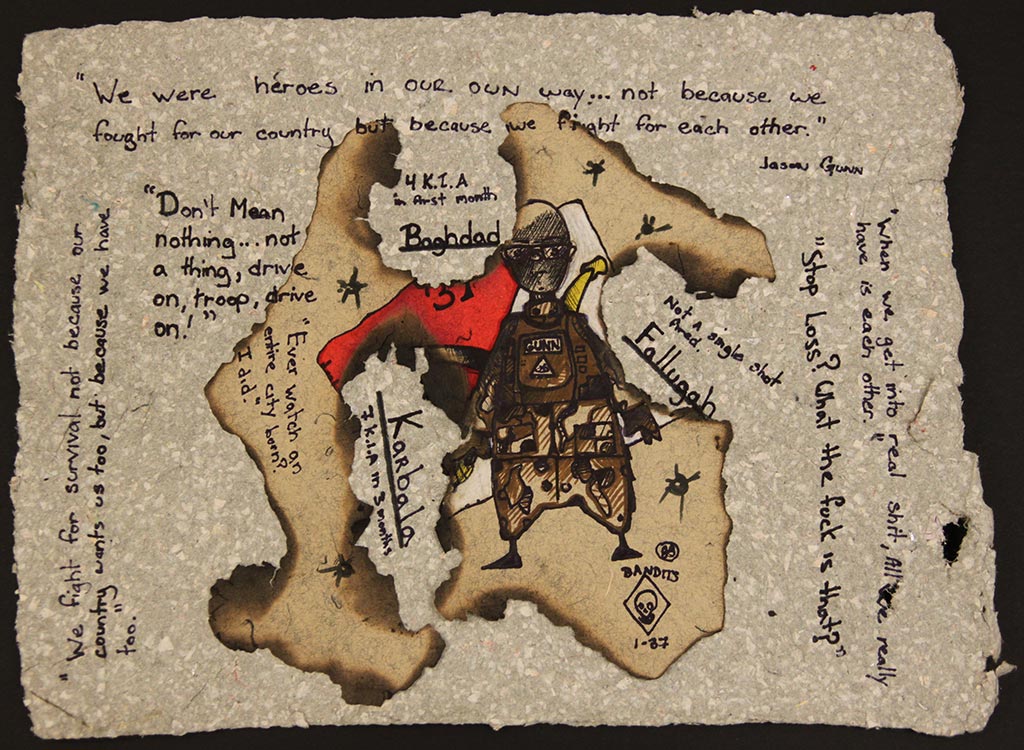 "We were heroes in our own way... not because we
fought for our country but because we fight for each other."
Jason Gunn
4 K.I.A
in first month
Baghdad
"Don't Mean
nothing... not
a thing, drive
on, troop, drive
on!"
"Ever watch an
entire city born?
I did."
Karbala
7 K.I.A in 3 months
"We fight for survival not because our
country wants us too, but because we have
too."
GUNN
Not a single shot
fired.
Fallugah
"Stop Loss? What the fuck is that?"
"When we get into real shit, All we really
have is each other."
BANDITS
1-37